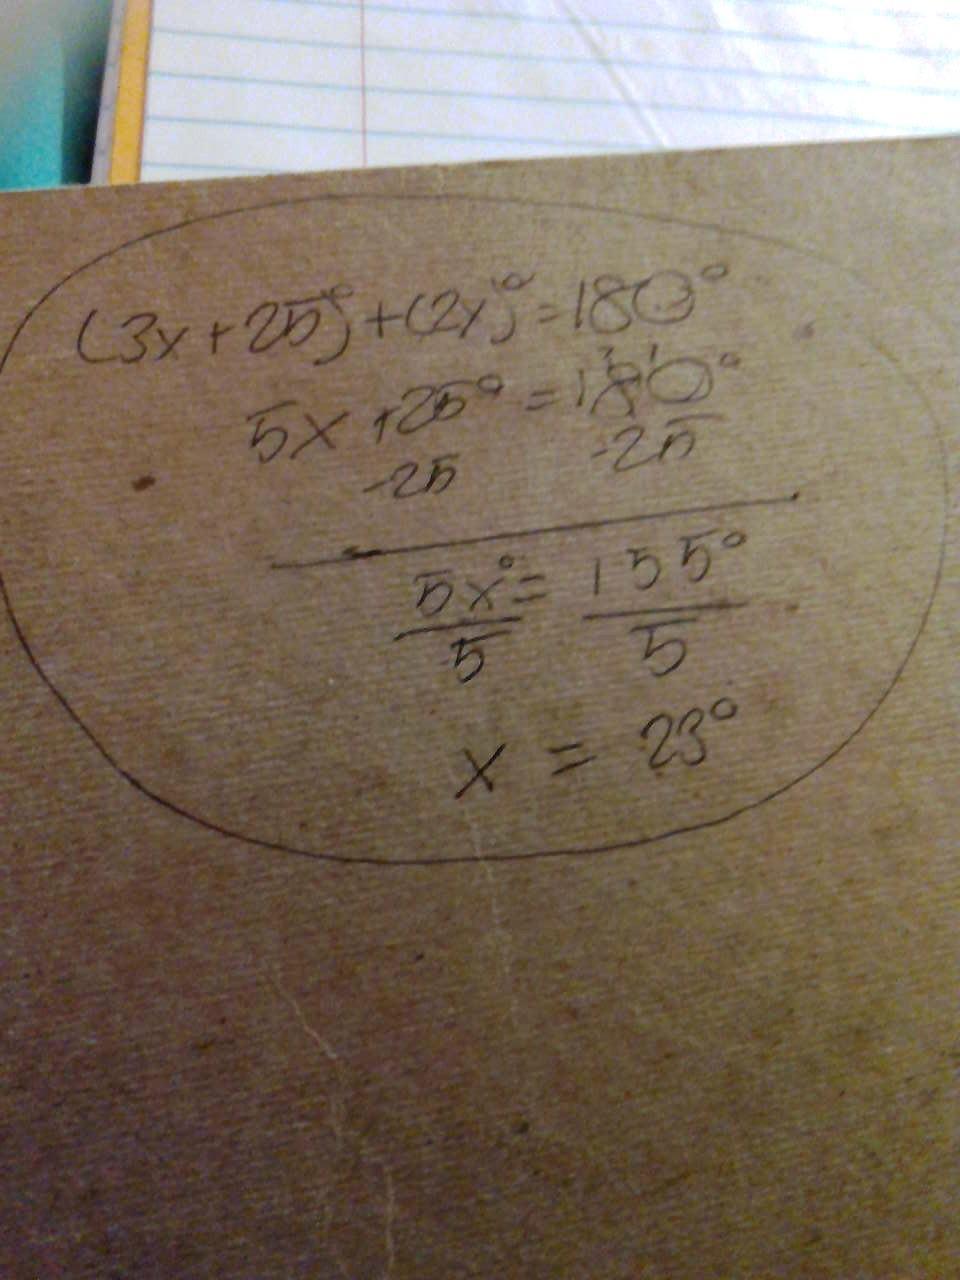 (3x+25)°+(2x)°=180°
5x+25°=180°
-25 -25
5x°= 155°
5 5
x = 23°